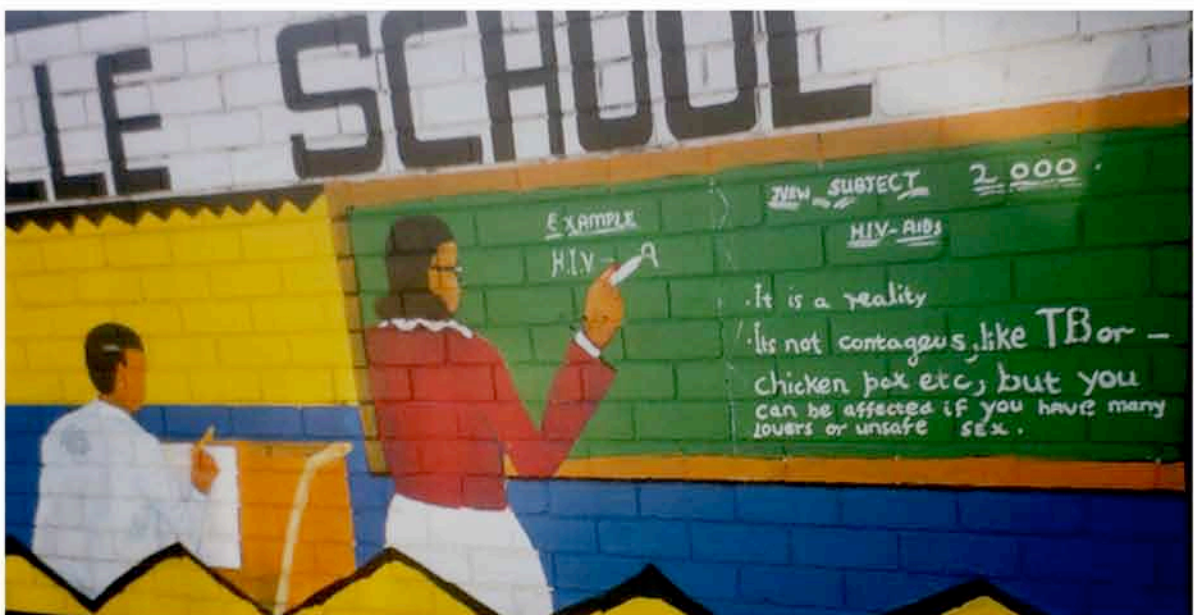 LLE SCHOOL
EXAMPLE
H.I.V - A
NEW SUBJECT 2000.
H.I.V - AIDS
. It is a reality
. Its not contageus, like TB or -
chicken pox etc, but you
can be affected if you have many
lovers or unsafe SEX.